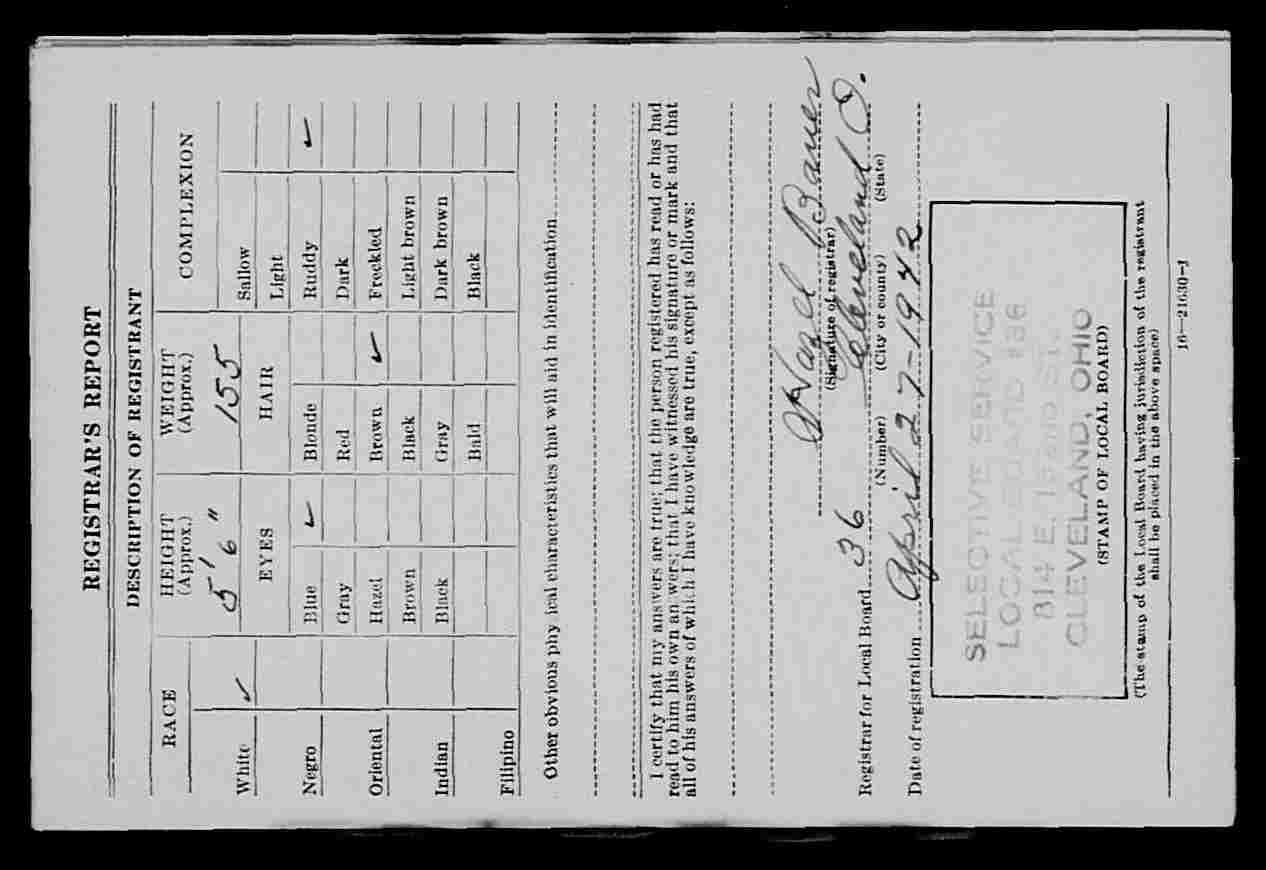 REGISTRAR'S REPORT
DESCRIPTION OF REGISTRANT
RACE
HEIGHT (Approx.)
WEIGHT (Approx.)
COMPLEXION
5' 6"
155
EYES
HAIR
White ✓
Negro
Oriental
Indian
Filipino
Blue ✓
Gray
Hazel
Brown
Black
Blonde
Red
Brown ✓
Black
Gray
Bald
Sallow
Light
Ruddy ✓
Dark
Freckled
Light brown
Dark brown
Black
Other obvious physical characteristics that will aid in identification
I certify that my answers are true; that the person registered has read or has had
read to him his own answers; that I have witnessed his signature or mark and that
all of his answers of which I have knowledge are true, except as follows:
Hazel Bauer
(Signature of registrar)
Registrar for Local Board 36 Cleveland O.
(Number) (City or county) (State)
Date of registration April 27-1942
SELECTIVE SERVICE
LOCAL BOARD #36
814 E. St.
CLEVELAND, OHIO
(STAMP OF LOCAL BOARD)
(The stamp of the Local Board having jurisdiction of the registrant
shall be placed in the above space)
16—21630-1